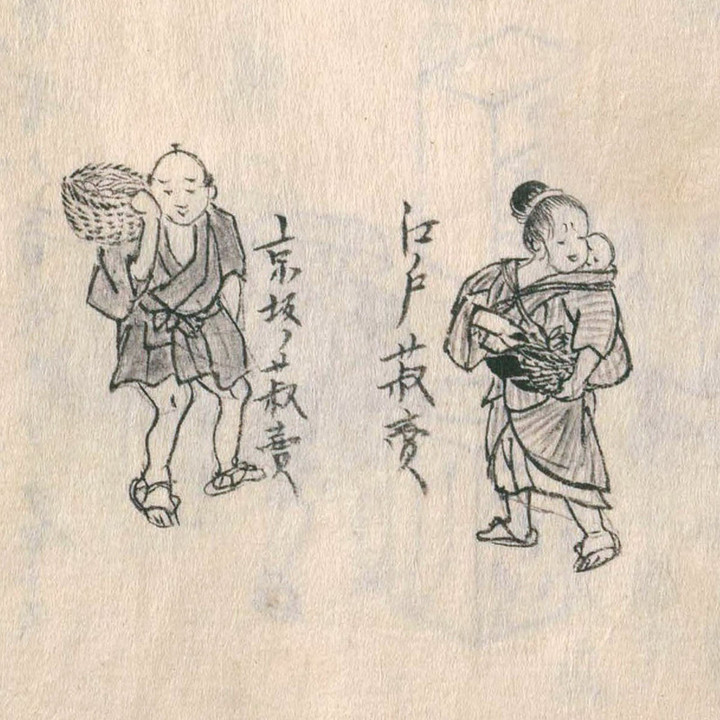 江戸菽賣
京坂ノ菽賣